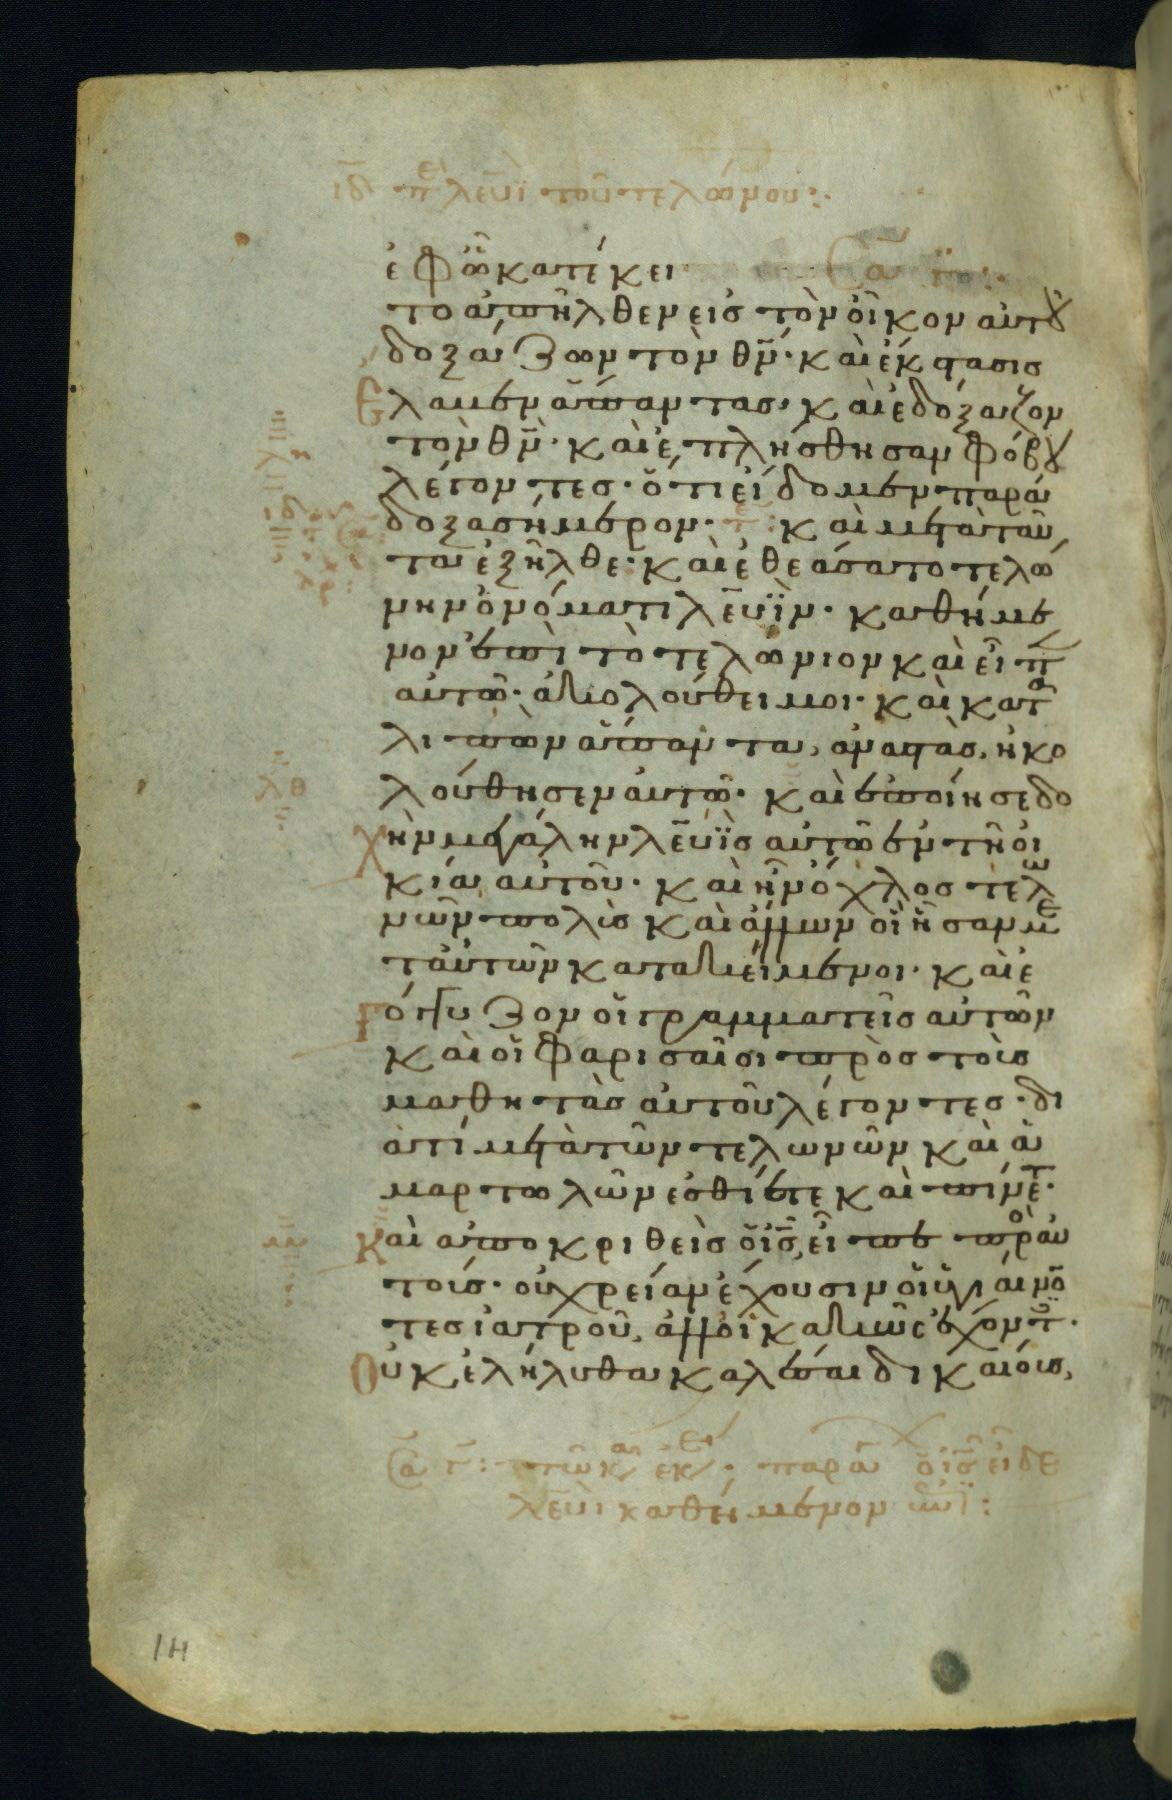 ιδ πε λευὶ τοῦ τελώνου:
ἐφ ᾧ κατέκει
το ἀπῆλθεν εἰς τὸν οἶκον αὐτοῦ
δοξάζων τὸν θν̄· καὶ ἔκστασις
Ἔλαβεν ἅπαντας· καὶ ἐδόξαζον
τὸν θν̄· καὶ ἐπλήσθησαν φόβου
λέγοντες· ὅτι εἴδομεν παρά
δοξα σήμερον· τε: καὶ μετὰ ταῦ
τα ἐξῆλθε· καὶ ἐθεάσατο τελώ
νην ὀνόματι λευῒν· καθήμε
νον ἐπὶ τὸ τελώνιον καὶ εἶπ
αὐτῷ· ἀκολούθει μοι· καὶ κατα
λιπὼν ἅπαντα, ἀναστὰς, ἠκο
λούθησεν αὐτῷ· καὶ ἐποίησε δο
χὴν μεγάλην λευῒς αὐτῷ ἐν τῇ οἰ
κίᾳ αὐτοῦ· καὶ ἦν ὄχλος τελω
νῶν πολὺς καὶ ἄλλων οἳ ἦσαν με
τ αὐτῶν κατακείμενοι· καὶ ἐ
γόγγυζον οἱ γραμματεῖς αὐτῶν
καὶ οἱ φαρισαῖοι πρὸς τοὺς
μαθητὰς αὐτοῦ λέγοντες· δι
ατί μετὰ τῶν τελωνῶν καὶ ἁ
μαρτωλῶν ἐσθίετε καὶ πίνετ·
Καὶ ἀποκριθεὶς ὁ ις̄ εἶπε πρὸ αὐ
τούς· οὐ χρείαν ἔχουσιν οἱ ὑγιαίνο
τες ἰατροῦ, ἀλλ οἱ κακῶς ἔχοντ·
Οὐκ ἐλήλυθα καλέσαι δικαίους,
παρά ὁ ις̄ εἶδε
λευὶ καθήμενον
λθ
μ
14